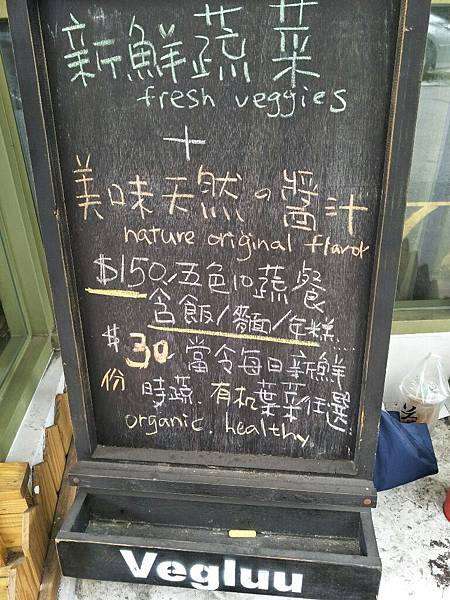 新鮮蔬菜
fresh veggies
+
美味天然の醬汁
nature original flavor
$150/五色10蔬餐
含飯/麵/年糕...
$30份 當令每日新鮮
時蔬.有机葉菜任選
organic. healthy
Vegluu